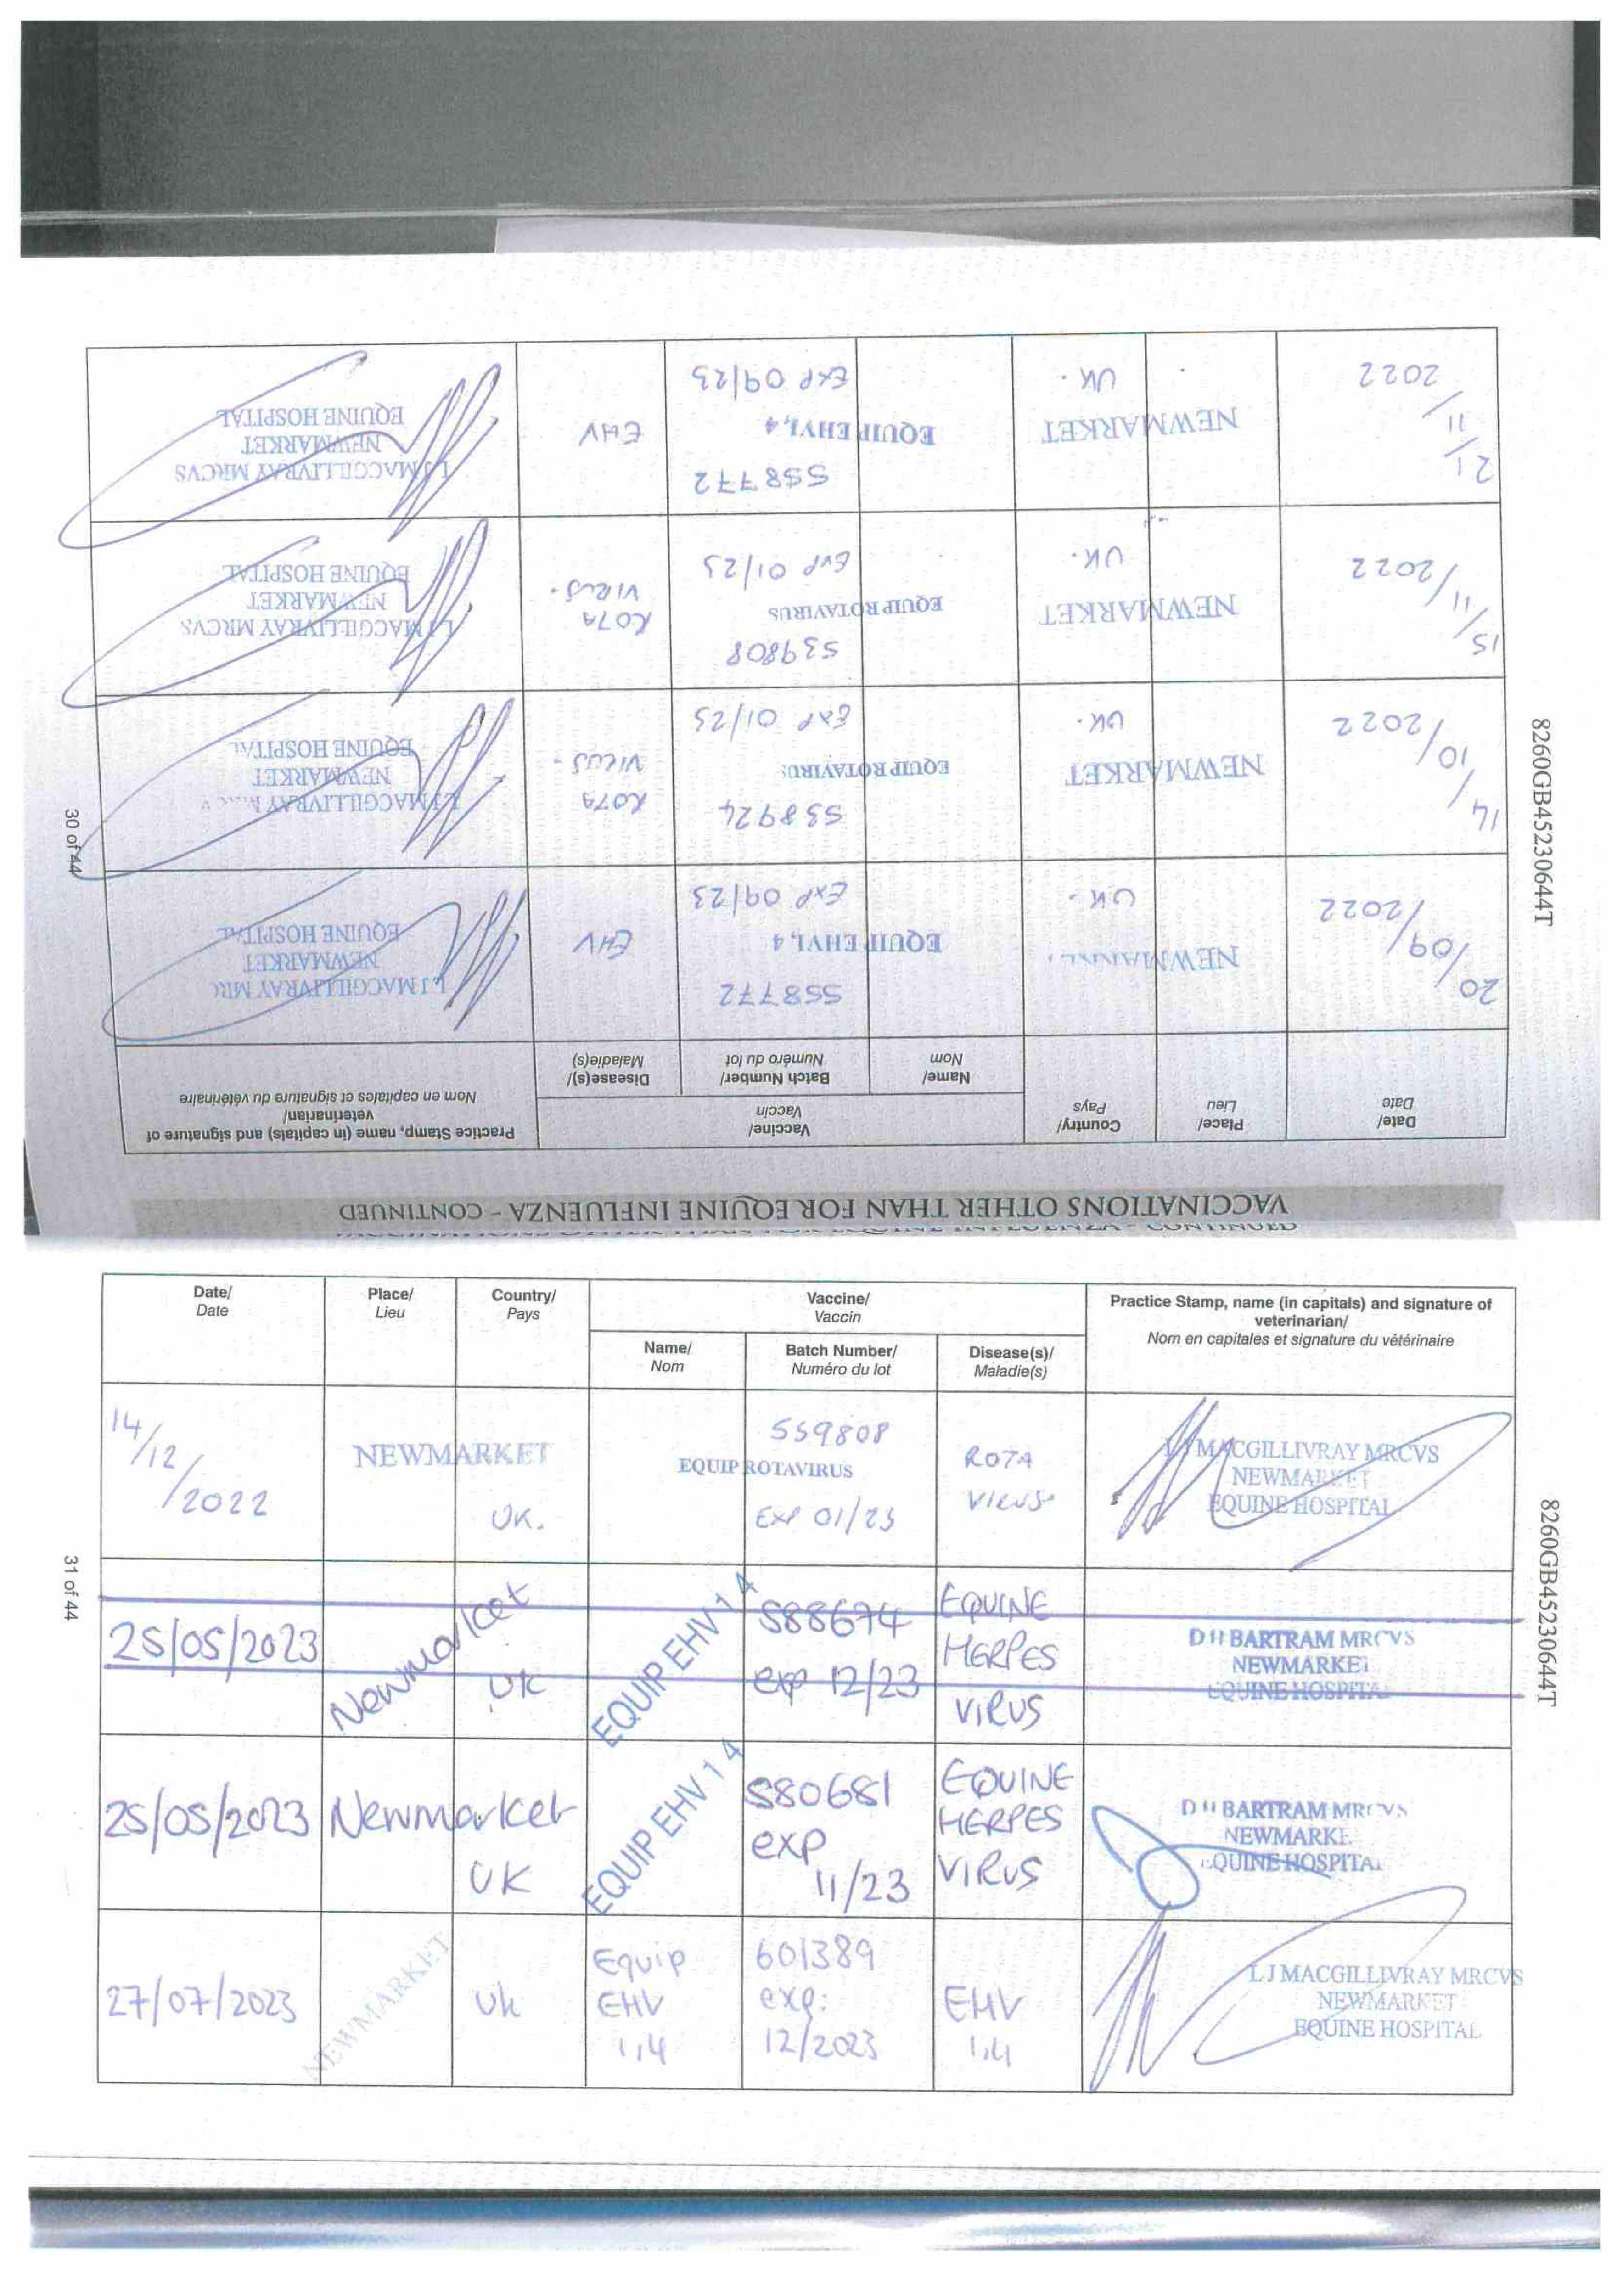 VACCINATIONS OTHER THAN FOR EQUINE INFLUENZA - CONTINUED
Date/
Date
Place/
Lieu
Country/
Pays
Vaccine/
Vaccin
Name/
Nom
Batch Number/
Numéro du lot
Disease(s)/
Maladie(s)
Practice Stamp, name (in capitals) and signature of
veterinarian/
Nom en capitales et signature du vétérinaire
20/09/2022
UK.
558772
EQUIP EHV1,4
EXP 09/23
EHV
L J MACGILLIVRAY MRC
NEWMARKET
EQUINE HOSPITAL
14/10/2022
NEWMARKET
UK.
538924
EQUIP ROTAVIRUS
EXP 01/23
ROTA
VIRUS.
L J MACGILLIVRAY
NEWMARKET
EQUINE HOSPITAL
15/11/2022
NEWMARKET
UK.
539808
EQUIP ROTAVIRUS
EXP 01/23
ROTA
VIRUS.
L J MACGILLIVRAY MRCVS
NEWMARKET
EQUINE HOSPITAL
21/11/2022
NEWMARKET
UK.
558772
EQUIP EHV1,4
EXP 09/23
EHV
L J MACGILLIVRAY MRCVS
NEWMARKET
EQUINE HOSPITAL
30 of 44
8260GB45230644T
Date/
Date
Place/
Lieu
Country/
Pays
Vaccine/
Vaccin
Name/
Nom
Batch Number/
Numéro du lot
Disease(s)/
Maladie(s)
Practice Stamp, name (in capitals) and signature of
veterinarian/
Nom en capitales et signature du vétérinaire
14/12/2022
NEWMARKET
UK.
539808
EQUIP ROTAVIRUS
EXP 01/23
ROTA
VIRUS
L J MACGILLIVRAY MRCVS
NEWMARKET
EQUINE HOSPITAL
25/05/2023
Newmarket
UK
EQUIP EHV 1 4
588674
exp 12/23
EQUINE
HERPES
VIRUS
D H BARTRAM MRCVS
NEWMARKET
EQUINE HOSPITA
25/05/2023
Newmarket
UK
EQUIP EHV 1 4
580681
exp
11/23
EQUINE
HERPES
VIRUS
D H BARTRAM MRCVS
NEWMARKE
EQUINE HOSPITA
27/07/2023
NEWMARKET
Uk
Equip
EHV
1,4
601389
exp:
12/2023
EHV
1,4
L J MACGILLIVRAY MRCVS
NEWMARKET
EQUINE HOSPITAL
31 of 44
8260GB45230644T